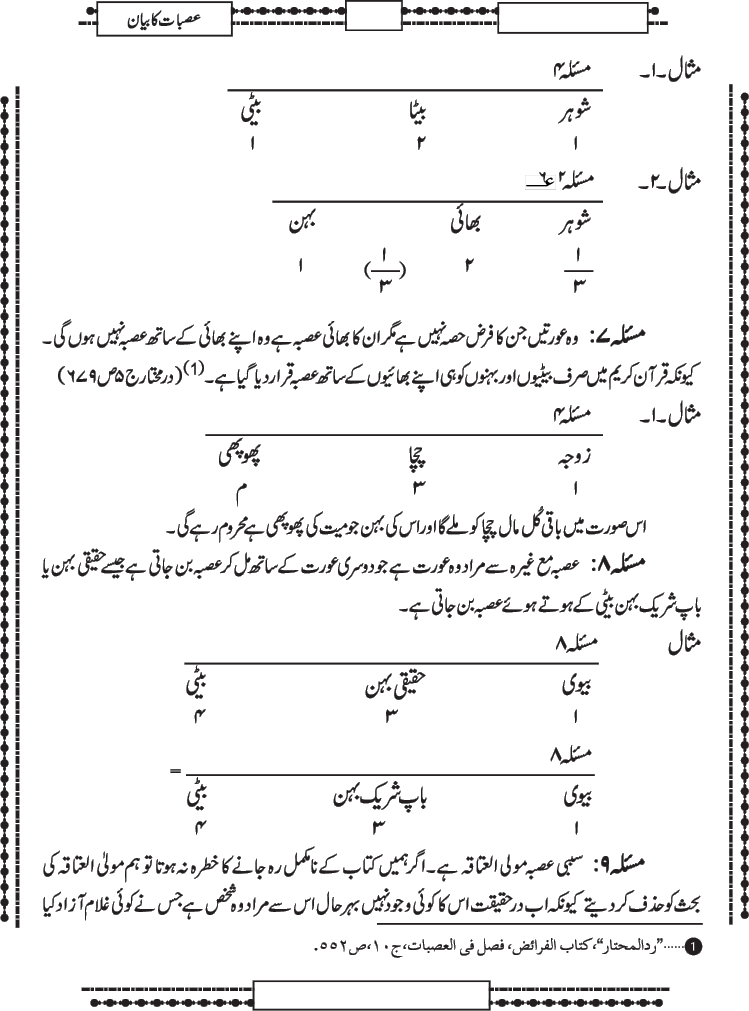 عصبات کا بیان
مثال ۔۱۔ مسئلہ ۴
شوہر بیٹا بیٹی
۱ ۲ ۱
مثال ۔۲۔ مسئلہ ۲ ع ۶
شوہر بھائی بہن
۱/۳ ۲ (۱/۳) ۱
مسئلہ ۷: وہ عورتیں جن کا فرض حصہ نہیں ہے مگر ان کا بھائی عصبہ ہے وہ اپنے بھائی کے ساتھ عصبہ نہیں ہوں گی ۔
کیونکہ قرآن کریم میں صرف بیٹیوں اور بہنوں کو ہی اپنے بھائیوں کے ساتھ عصبہ قرار دیا گیا ہے۔(1) (درمختار ج ۵ ص ۶۷۹)
مثال ۔۱۔ مسئلہ ۴
زوجہ چچا پھوپھی
۱ ۳ م
اس صورت میں باقی کُل مال چچا کو ملے گا اور اس کی بہن جو میت کی پھوپھی ہے محروم رہے گی۔
مسئلہ ۸: عصبہ مع غیرہ سے مراد وہ عورت ہے جو دوسری عورت کے ساتھ مل کر عصبہ بن جاتی ہے جیسے حقیقی بہن یا
باپ شریک بہن بیٹی کے ہوتے ہوئے عصبہ بن جاتی ہے۔
مثال مسئلہ ۸
بیوی حقیقی بہن بیٹی
۱ ۳ ۴
مسئلہ ۸ =
بیوی باپ شریک بہن بیٹی
۱ ۳ ۴
مسئلہ ۹: سببی عصبہ مولی العتاقہ ہے۔ اگر ہمیں کتاب کے نامکمل رہ جانے کا خطرہ نہ ہوتا تو ہم مولیٰ العتاقہ کی
بحث کو حذف کر دیتے کیونکہ اب درحقیقت اس کا کوئی وجود نہیں بہر حال اس سے مراد وہ شخص ہے جس نے کوئی غلام آزاد کیا
1 ......"ردالمحتار"، کتاب الفرائض، فصل فی العصبات، ج۱۰، ص۵۵۲.